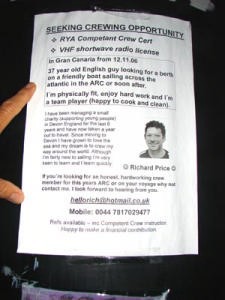 SEEKING CREWING OPPORTUNITY
❖ RYA Competent Crew Cert
❖ VHF shortwave radio license
in Gran Canaria from 12.11.06
37 year old English guy looking for a berth
on a friendly boat sailing across the
atlantic in the ARC or soon after.
I'm physically fit, enjoy hard work and I'm
a team player (happy to cook and clean).
I have been managing a small
charity (supporting young people)
in Devon England for the last 6
years and have now taken a year
out to travel. Since moving to
Devon I have grown to love the
sea and my dream is to crew my
way around the world. Although
I'm fairly new to sailing I'm very
keen to learn and I learn quickly
☺ Richard Price ☺
If you're looking for an honest, hardworking crew
member for this years ARC or on your voyage why not
contact me. I look forward to hearing from you.
hellorich@hotmail.co.uk
Mobile: 0044 7817029477
Refs available – inc Competent Crew instructor.
Happy to make a financial contribution.